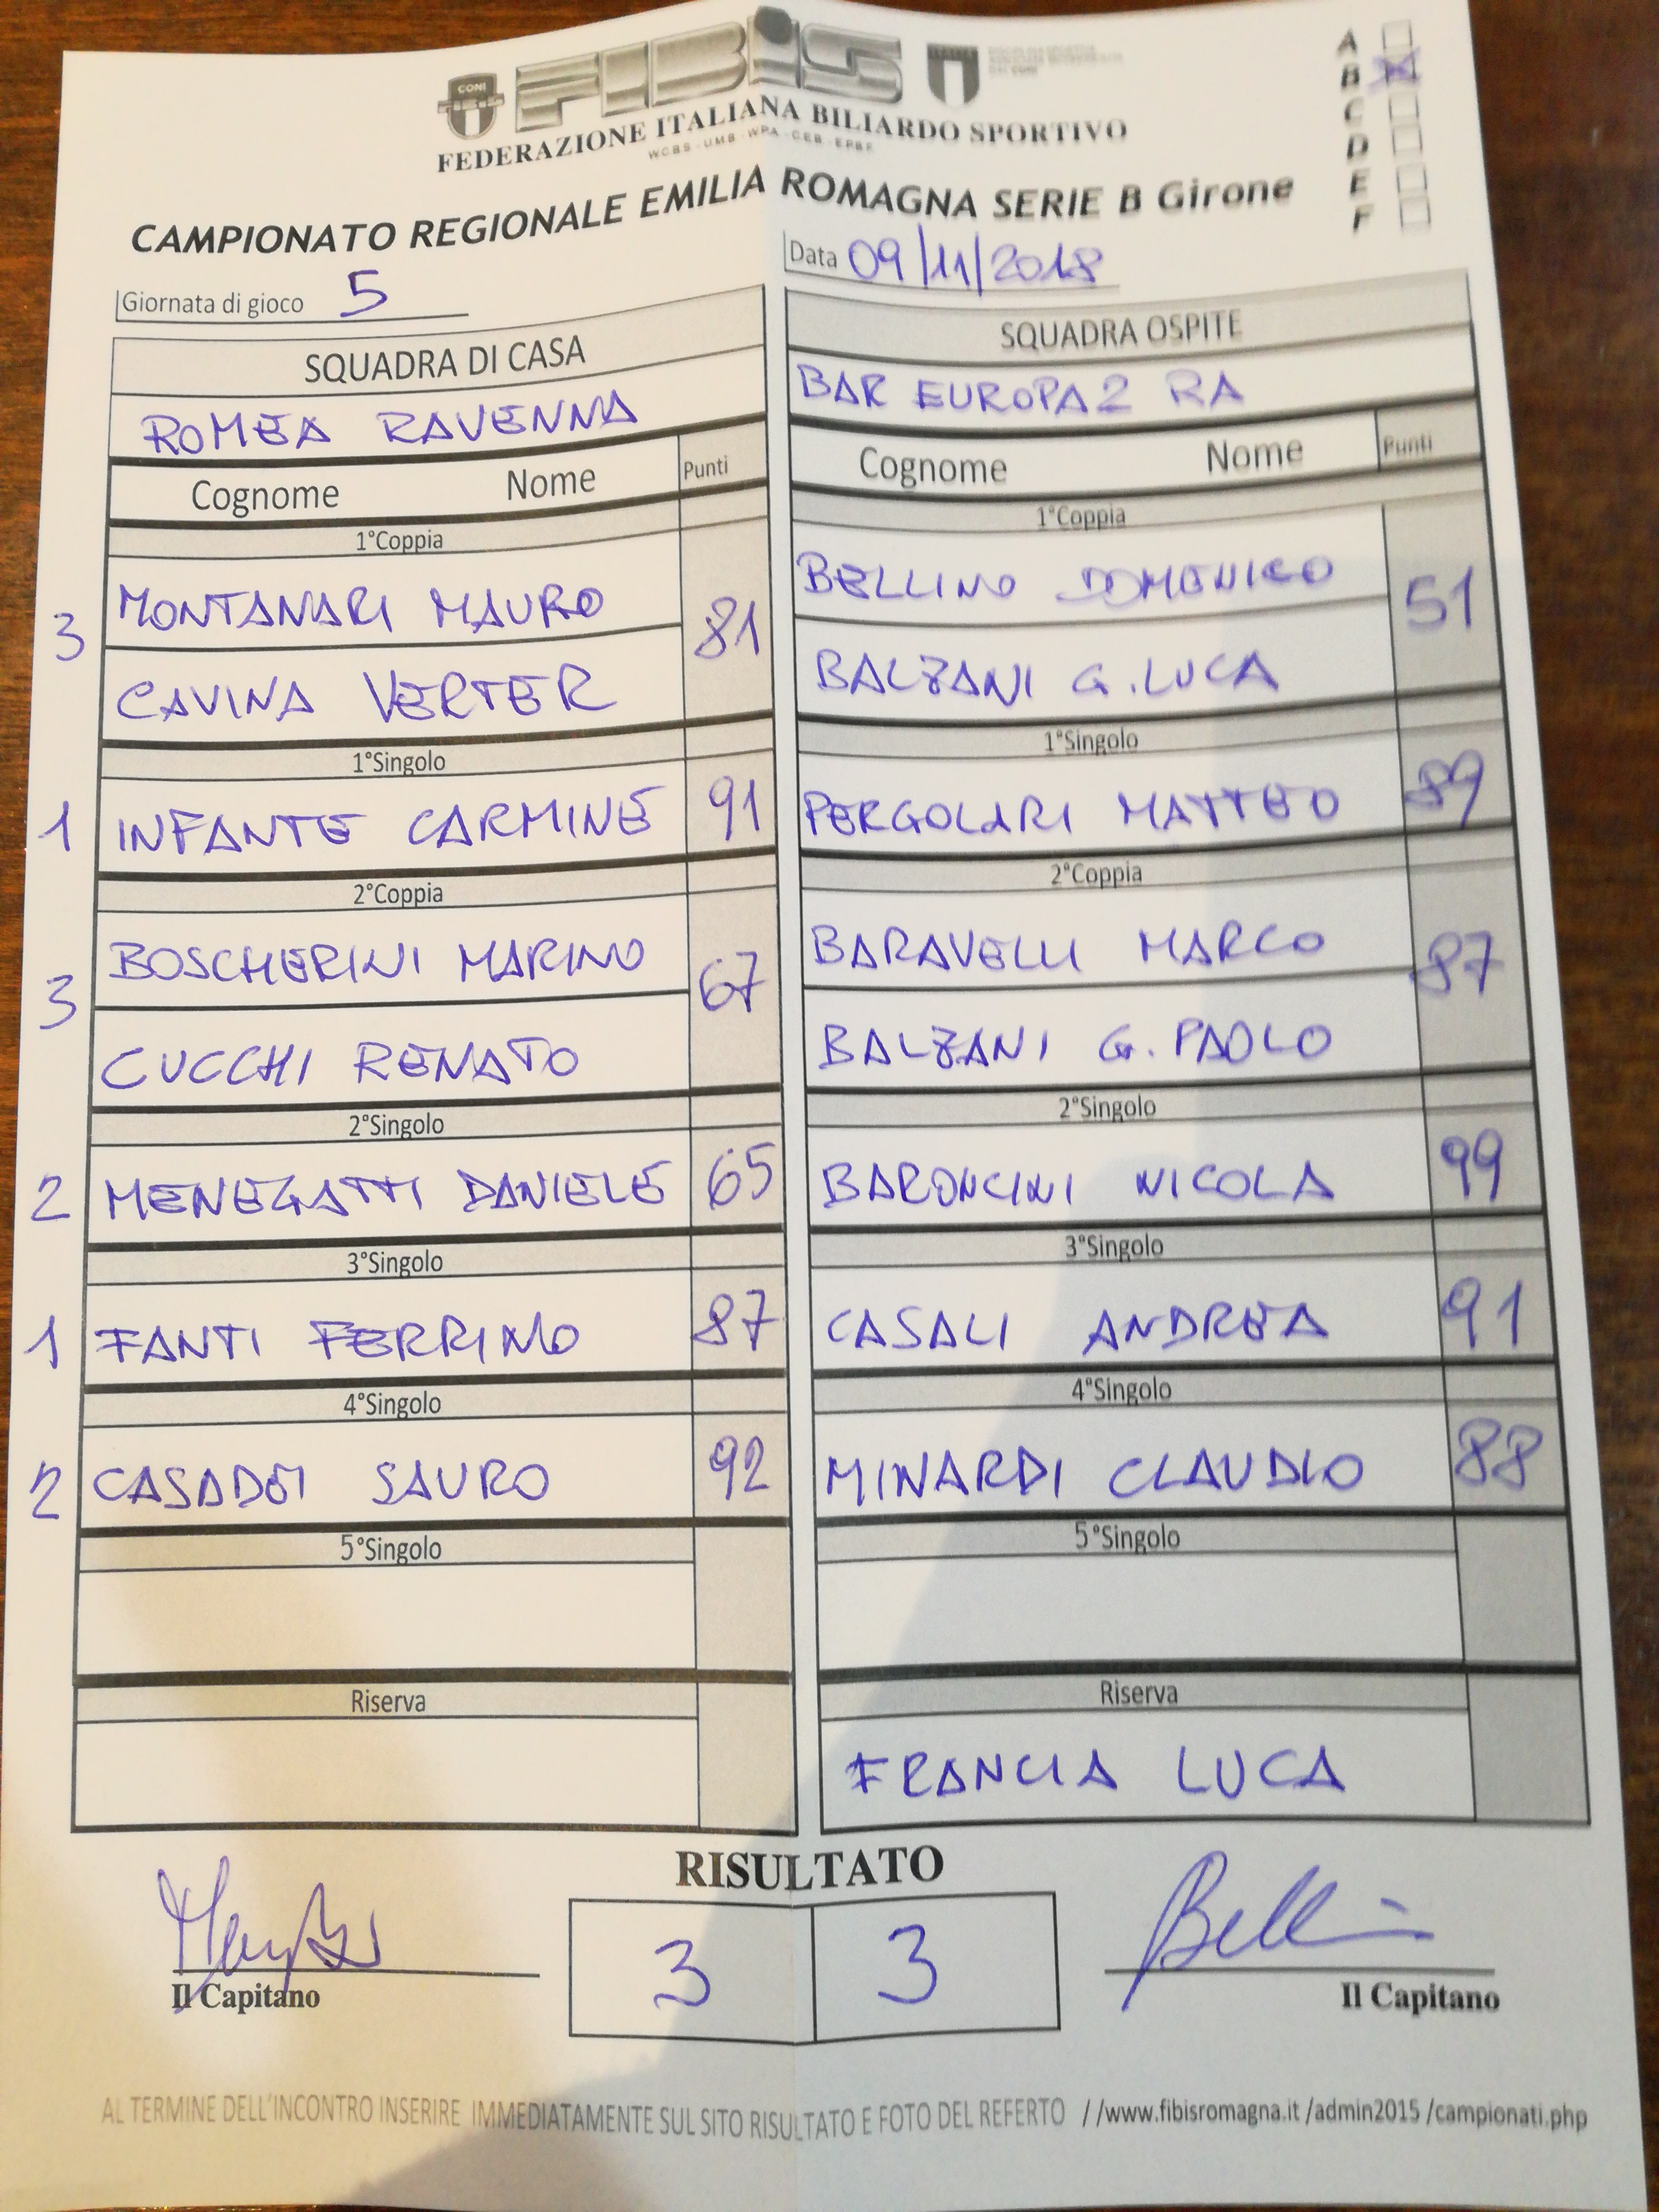 CONI
FIBiS
FEDERAZIONE ITALIANA BILIARDO SPORTIVO
WCBS - UMB - WPA - CEB - EPBF
A
B
C
D
E
F
CAMPIONATO REGIONALE EMILIA ROMAGNA SERIE B Girone
Giornata di gioco 5
Data 09/11/2018
SQUADRA DI CASA
ROMEA RAVENNA
Cognome Nome Punti
1°Coppia
3 MONTANARI MAURO 81
CAVINA VERTER
1°Singolo
1 INFANTE CARMINE 91
2°Coppia
3 BOSCHERINI MARINO 67
CUCCHI RENATO
2°Singolo
2 MENEGATTI DANIELE 65
3°Singolo
1 FANTI FERRINO 87
4°Singolo
2 CASADEI SAURO 92
5°Singolo
Riserva
SQUADRA OSPITE
BAR EUROPA 2 RA
Cognome Nome Punti
1°Coppia
BELLINO DOMENICO 51
BALZANI G. LUCA
1°Singolo
PERGOLARI MATTEO 89
2°Coppia
BARAVELLI MARCO 87
BALZANI G. PAOLO
2°Singolo
BARONCINI NICOLA 99
3°Singolo
CASALI ANDREA 91
4°Singolo
MINARDI CLAUDIO 88
5°Singolo
Riserva
FRANCIA LUCA
RISULTATO
3 3
Il Capitano
Il Capitano
AL TERMINE DELL'INCONTRO INSERIRE IMMEDIATAMENTE SUL SITO RISULTATO E FOTO DEL REFERTO //www.fibisromagna.it /admin2015 /campionati.php